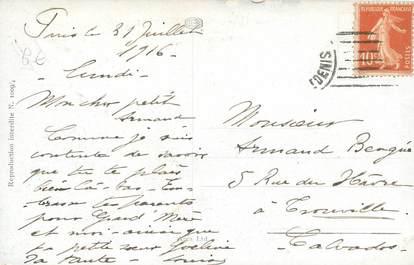 Paris le 31 Juillet
1916
Lundi
Mon cher petit
Armand
Comme je suis
contente de savoir
que tu te plais
bien là-bas - Em-
brasse tes parents
pour Grand Mère
et moi - ainsi que
ta petite sœur
Ta tante Louise
Monsieur
Armand
5 Rue du Hâvre
à Trouville
Calvados
Reproduction interdite N.
RÉPUBLIQUE FRANÇAISE
10c
POSTES
DENIS
Ltd